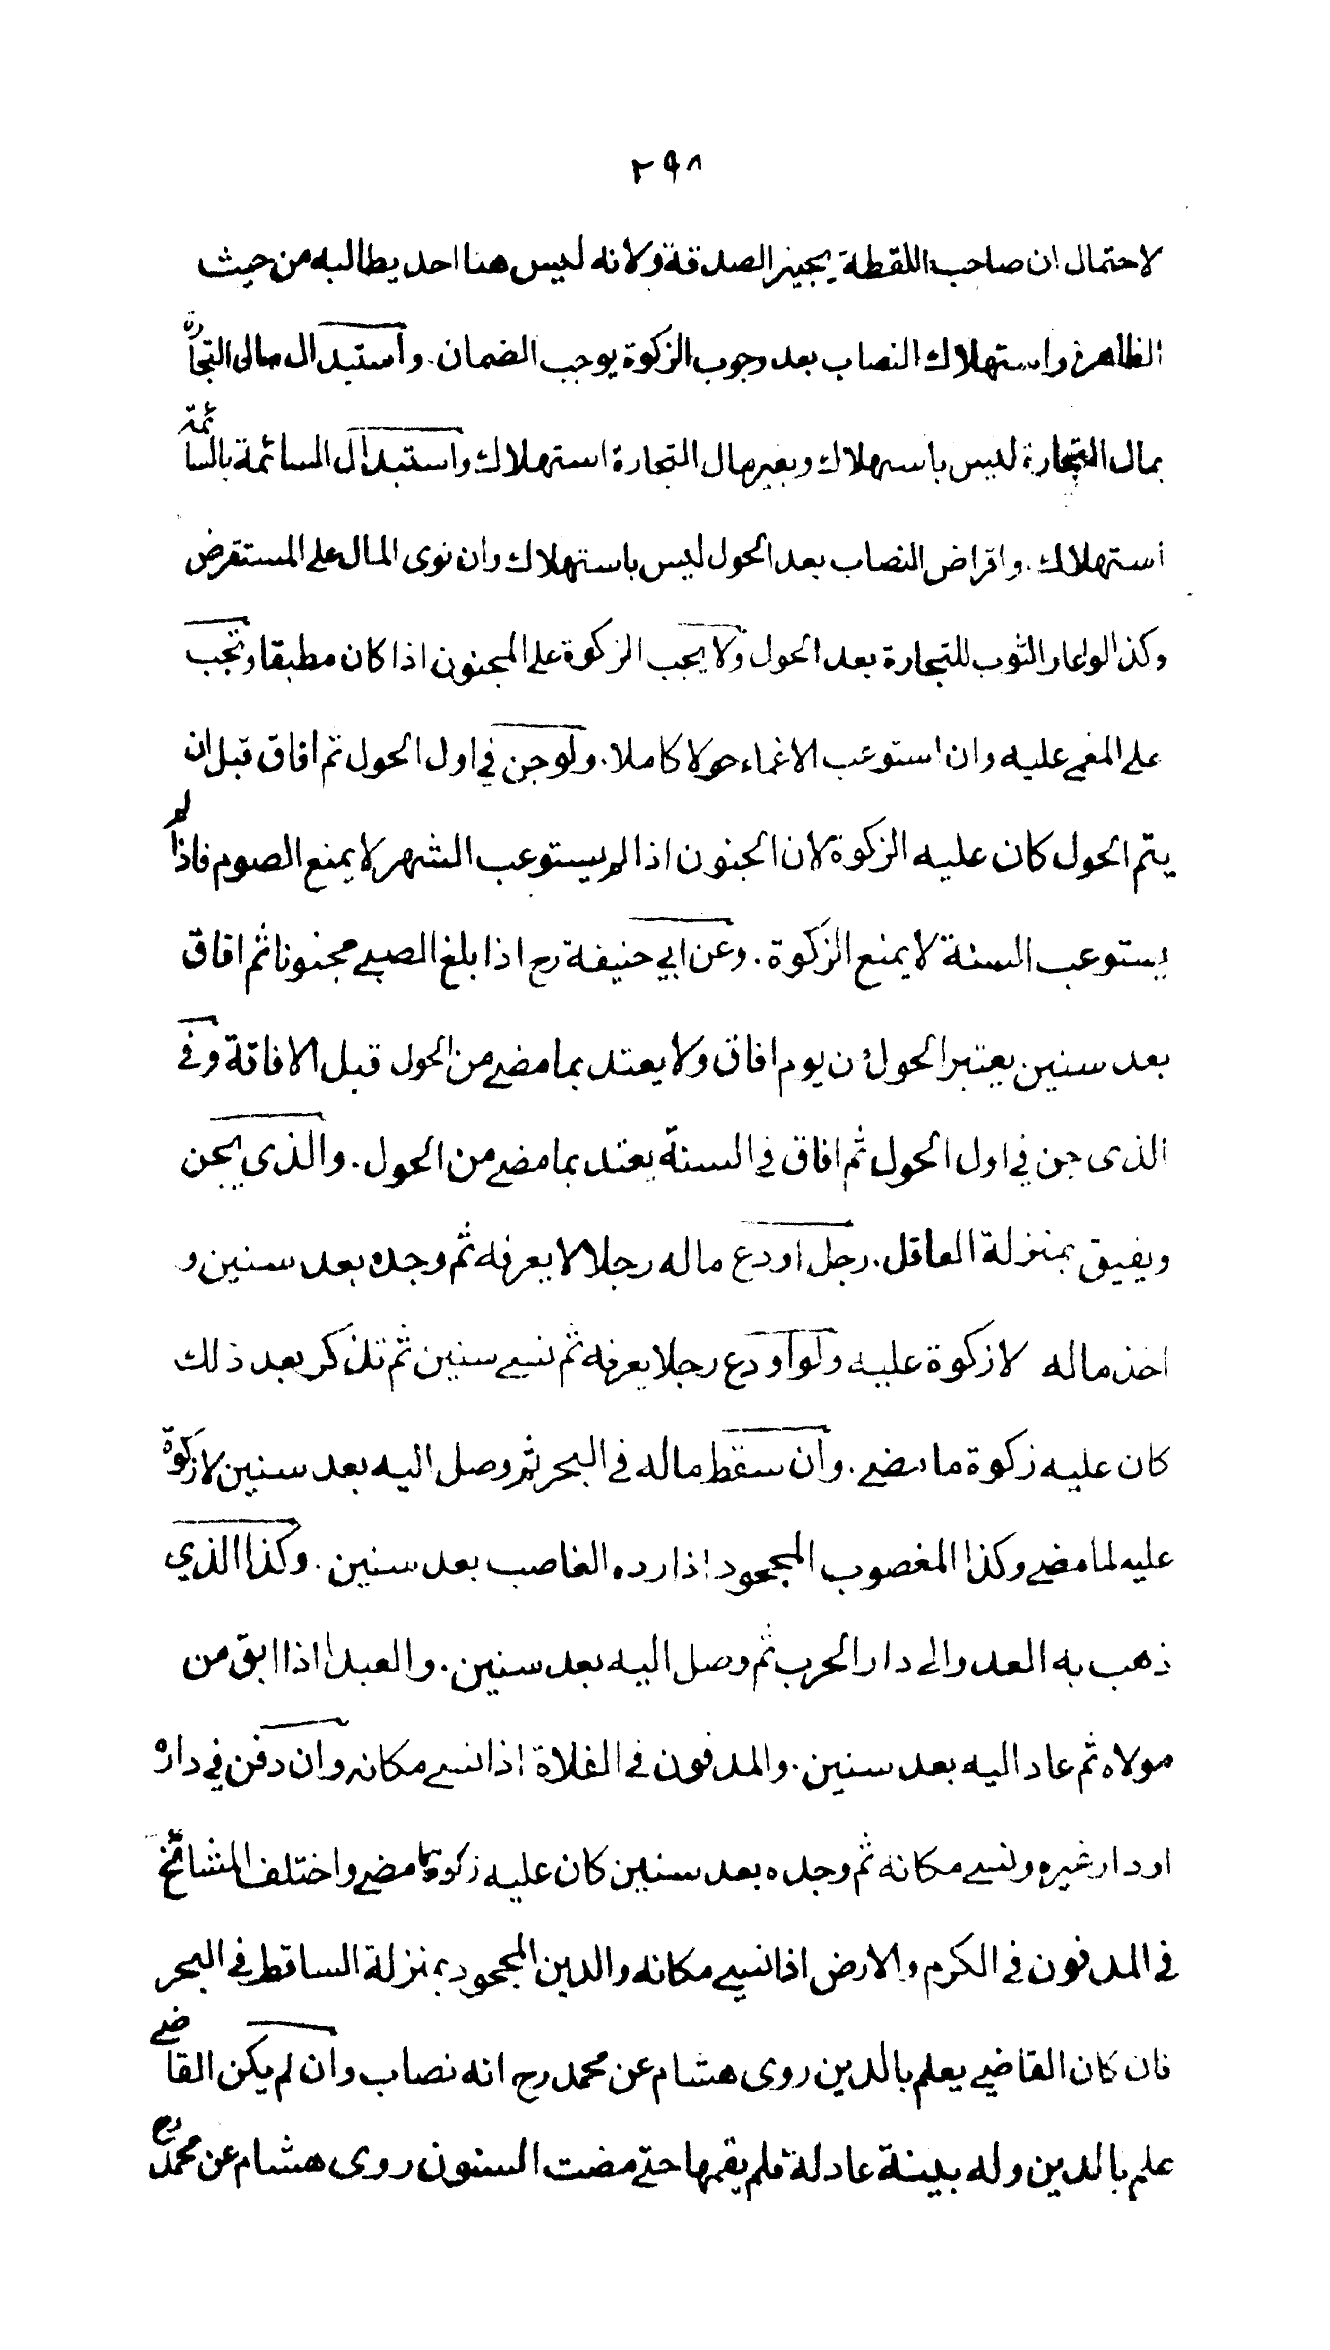 ٢٩٨
لاحتمال ان صاحب اللقطة يجيز الصدقة ولانه ليس هنا احد يطالبه من حيث
الظاهر واستهلاك النصاب بعد وجوب الزكوة يوجب الضمان. واستبدال مال التجارة
بمال التجارة ليس باستهلاك وبغير مال التجارة استهلاك واستبدال السائمة بالسائمة
استهلاك. واقراض النصاب بعد الحول ليس باستهلاك وان نوى المال على المستقرض
وكذا لو اعار الثوب للتجارة بعد الحول ولا يجب الزكوة على المجنون اذا كان مطبقا وتجب
على المغمى عليه وان استوعب الاغماء حولا كاملا. ولو جن في اول الحول ثم افاق قبل ان
يتم الحول كان عليه الزكوة لان الجنون اذا لم يستوعب الشهر لا يمنع الصوم فاذا لم
يستوعب السنة لا يمنع الزكوة. وعن ابي حنيفة رح اذا بلغ الصبي مجنونا ثم افاق
بعد سنين يعتبر الحول من يوم افاق ولا يعتد بما مضى من الحول قبل الافاقة وفى
الذى جن في اول الحول ثم افاق في السنة يعتد بما مضى من الحول. والذي يجن
ويفيق بمنزلة العاقل. رجل اودع ماله رجلا لا يعرفه ثم وجده بعد سنين و
اخذ ماله لا زكوة عليه ولو اودع رجلا يعرفه ثم نسى سنين ثم تذكر بعد ذلك
كان عليه زكوة ما مضى. وان سقط ماله في البحر ثم وصل اليه بعد سنين لا زكوة
عليه لما مضى وكذا المغصوب المجحود اذا رده الغاصب بعد سنين. وكذا الذي
ذهب به العدو الى دار الحرب ثم وصل اليه بعد سنين. والعبد اذا ابق من
مولاه ثم عاد اليه بعد سنين. والمدفون في الفلاة اذا نسى مكانه وان دفن في داره
او دار غيره ونسى مكانه ثم وجده بعد سنين كان عليه زكوة ما مضى واختلف المشائخ
في المدفون في الكرم والارض اذا نسى مكانه والدين المجحود بمنزلة الساقط في البحر
فان كان القاضي يعلم بالدين روى هشام عن محمد رح انه نصاب وان لم يكن القاضى
علم بالدين وله بينة عادلة فلم يقمها حتى مضت السنون روى هشام عن محمد رح